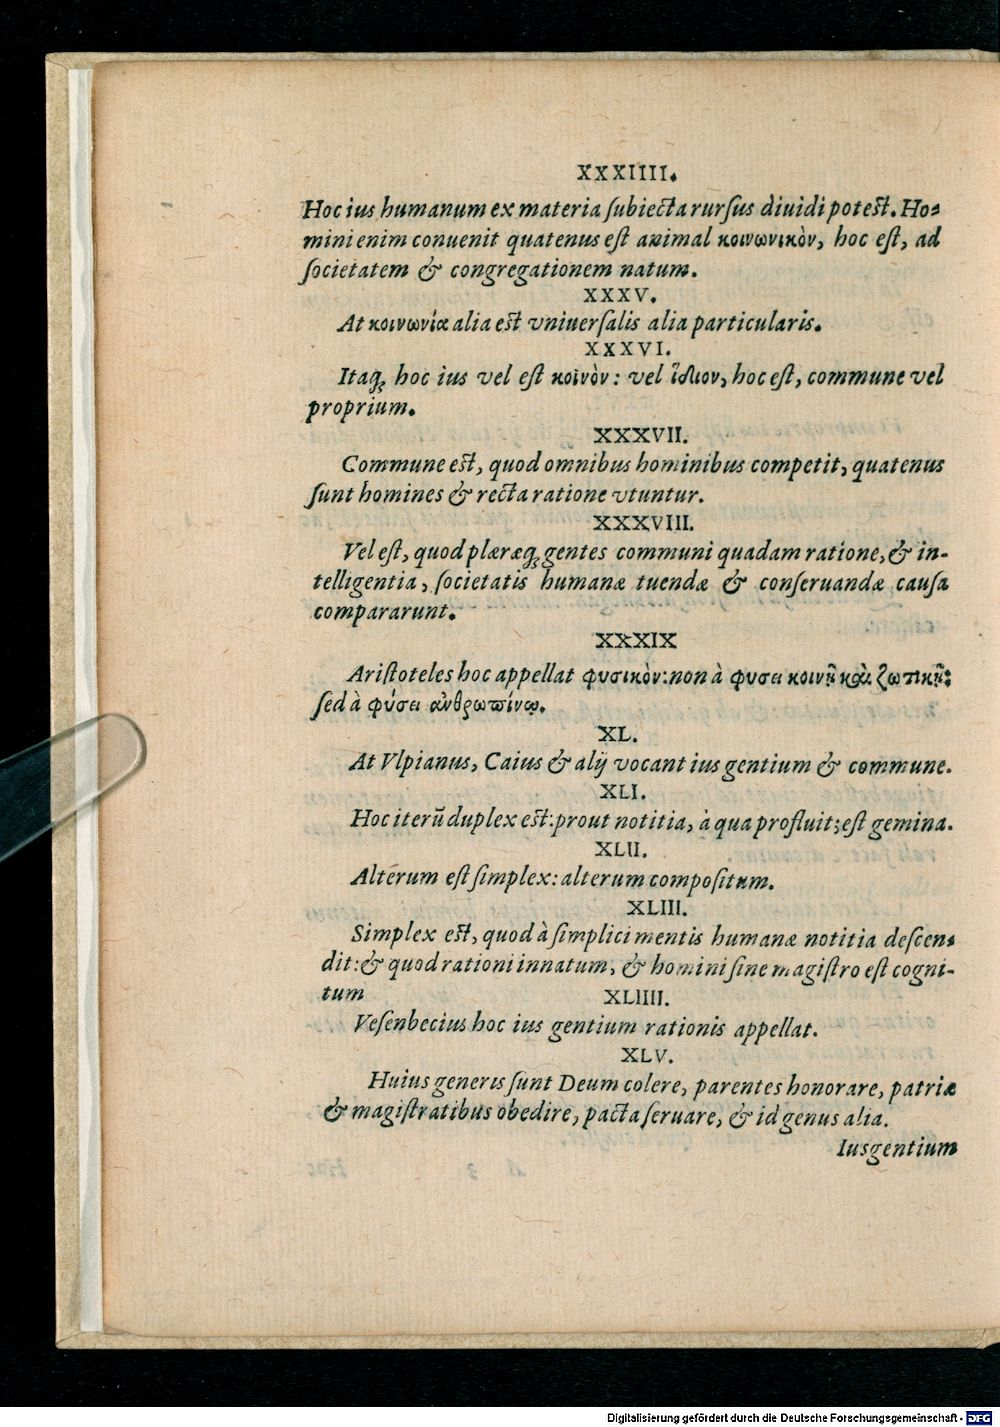 XXXIIII.
Hoc ius humanum ex materia ſubiecta rurſus diuidi poteſt. Ho⸗
mini enim conuenit quatenus eſt animal κοινωνικὸν, hoc eſt, ad
ſocietatem & congregationem natum.
XXXV.
At κοινωνία alia eſt vniuerſalis alia particularis.
XXXVI.
Itaq; hoc ius vel eſt κοινὸν: vel ἴδιον, hoc eſt, commune vel
proprium.
XXXVII.
Commune eſt, quod omnibus hominibus competit, quatenus
ſunt homines & recta ratione vtuntur.
XXXVIII.
Vel eſt, quod plæræq; gentes communi quadam ratione, & in-
telligentia, ſocietatis humanæ tuendæ & conſeruandæ cauſa
compararunt.
XXXIX
Ariſtoteles hoc appellat φυσικὸν: non à φυσει κοινῇ καὶ ζωτικῇ:
ſed à φύσει ἀνθρωπίνῳ.
XL.
At Vlpianus, Caius & alij vocant ius gentium & commune.
XLI.
Hoc iterū duplex eſt: prout notitia, à qua profluit; eſt gemina.
XLII.
Alterum eſt ſimplex: alterum compoſitum.
XLIII.
Simplex eſt, quod à ſimplici mentis humanæ notitia deſcen⸗
dit: & quod rationi innatum, & homini ſine magiſtro eſt cogni-
tum
XLIIII.
Veſenbecius hoc ius gentium rationis appellat.
XLV.
Huius generis ſunt Deum colere, parentes honorare, patriæ
& magiſtratibus obedire, pacta ſeruare, & id genus alia.
Ius gentium
Digitalisierung gefördert durch die Deutsche Forschungsgemeinschaft - DFG